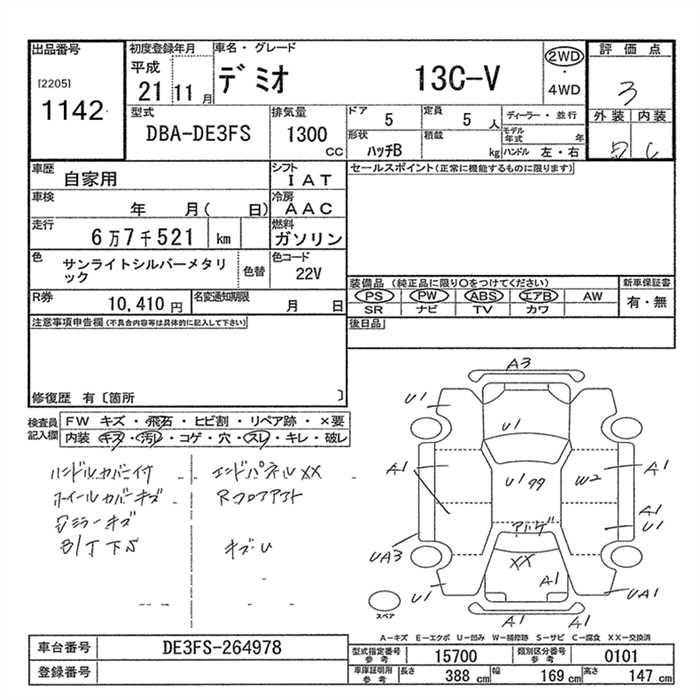 出品番号
[2205]
1142
初度登録年月
平成
21 11 月
車名・グレード
デミオ 13C-V
2WD
・
4WD
評価点
3
外装 内装
C
型式
DBA-DE3FS
排気量
1300
CC
ドア
5
定員
5 人
形状
ハッチB
積載
kg
ディーラー・並行
モデル年式 年
ハンドル 左・右
車歴
自家用
シフト
IAT
車検
年 月( 日)
冷房
AAC
走行
6万7千521 km
燃料
ガソリン
色
サンライトシルバーメタリ
ック
色替
色コード
22V
R券
10,410 円
名変通知期限
月 日
セールスポイント(正常に機能するものに限ります)
装備品 (純正品に限り○をつけてください)
PS PW ABS エアB AW
SR ナビ TV カワ
新車保証書
有・無
後日品
注意事項申告欄(不具合内容等は具体的に記入して下さい)
修復歴 有〔箇所 〕
検査員
記入欄
FW キズ・飛石・ヒビ割・リペア跡・×要
内装 キズ・汚レ・コゲ・穴・スレ・キレ・破レ
ハンドルカバー付
ホイールカバーキズ
ミラーキズ
下S
エンドパネルXX
Rフロアスト
キズU
A3
U1
U1
A1
U1 99
W2
A1
A1
U1
アトゲ
XX
UA3
A1
U1
UA1
A1
A1
スペア
A-キズ E-エクボ U-凹み W-補修跡 S-サビ C-腐食 XX-交換済
車台番号
DE3FS-264978
登録番号
型式指定番号
参考
15700
類別区分番号
参考
0101
車庫証明用
参考
長さ 388 cm 幅 169 cm 高さ 147 cm